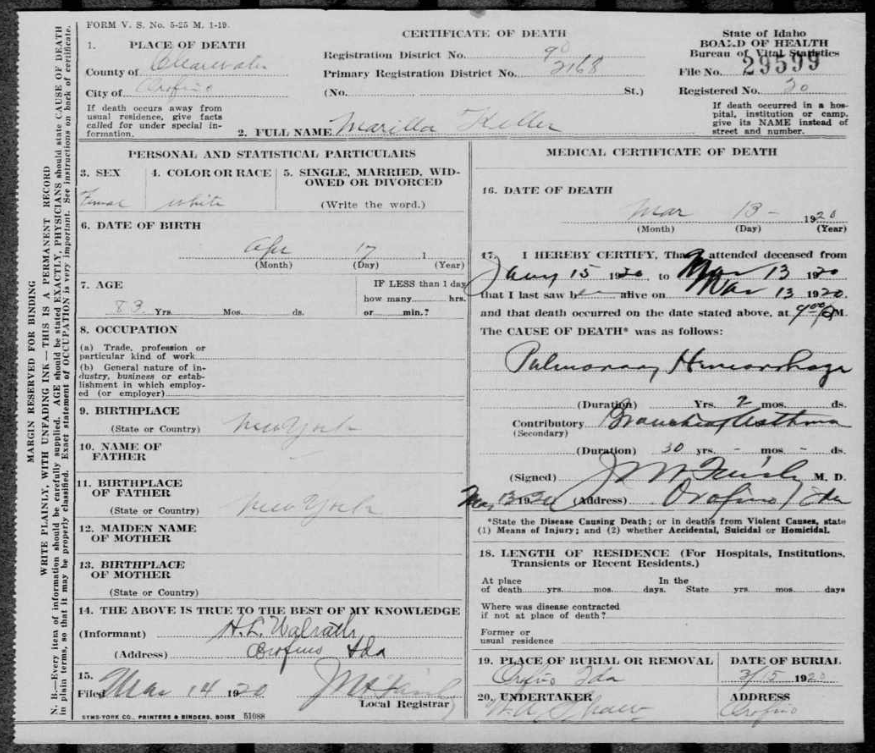 FORM V. S. No. 5-25 M. 1-19.
CERTIFICATE OF DEATH
State of Idaho
BOARD OF HEALTH
Bureau of Vital Statistics
1. PLACE OF DEATH
County of Clearwater
City of Orofino
Registration District No. 90
Primary Registration District No. 2168
(No. St.)
File No. 29599
Registered No. 20
If death occurs away from
usual residence, give facts
called for under special in-
formation.
2. FULL NAME Marilla Keller
If death occurred in a hos-
pital, institution or camp.
give its NAME instead of
street and number.
PERSONAL AND STATISTICAL PARTICULARS
3. SEX
4. COLOR OR RACE
5. SINGLE, MARRIED, WID-
OWED OR DIVORCED
Female white
(Write the word.)
6. DATE OF BIRTH
Apr 17 1
(Month) (Day) (Year)
7. AGE
IF LESS than 1 day
how many hrs.
83 Yrs. Mos. ds.
or min.?
8. OCCUPATION
(a) Trade, profession or
particular kind of work
(b) General nature of in-
dustry, business or estab-
lishment in which employ-
ed (or employer)
9. BIRTHPLACE
(State or Country) New York
10. NAME OF
FATHER
11. BIRTHPLACE
OF FATHER
(State or Country) New York
12. MAIDEN NAME
OF MOTHER
13. BIRTHPLACE
OF MOTHER
(State or Country)
14. THE ABOVE IS TRUE TO THE BEST OF MY KNOWLEDGE
(Informant) H. L. Walrath
(Address) Orofino Ida
15.
Filed Mar 14 1920
Local Registrar
SYMS-YORK CO., PRINTERS & BINDERS, BOISE 51088
MEDICAL CERTIFICATE OF DEATH
16. DATE OF DEATH
Mar 13 - 1920
(Month) (Day) (Year)
17. I HEREBY CERTIFY, That I attended deceased from
Jany 15 1920 to Mar 13 1920
that I last saw her alive on Mar 13 1920.
and that death occurred on the date stated above, at M.
The CAUSE OF DEATH* was as follows:
Pulmonary Hemorrhage
(Duration) Yrs. 2 mos. ds.
Contributory Bronchial Asthma
(Secondary)
(Duration) 30 yrs. - mos. - ds.
(Signed) M. D.
Mar 13 1920 (Address) Orofino Ida
*State the Disease Causing Death; or in deaths from Violent Causes, state
(1) Means of Injury; and (2) whether Accidental, Suicidal or Homicidal.
18. LENGTH OF RESIDENCE (For Hospitals, Institutions,
Transients or Recent Residents.)
At place In the
of death yrs. mos. days. State yrs. mos. days
Where was disease contracted
if not at place of death?
Former or
usual residence
19. PLACE OF BURIAL OR REMOVAL
DATE OF BURIAL
Orofino Ida 3/15 1920
20. UNDERTAKER
ADDRESS
Orofino
MARGIN RESERVED FOR BINDING
WRITE PLAINLY, WITH UNFADING INK—THIS IS A PERMANENT RECORD
N. B—Every item of information should be carefully supplied. AGE should be stated EXACTLY, PHYSICIANS should state CAUSE OF DEATH
in plain terms, so that it may be properly classified. Exact statement of OCCUPATION is very important. See instructions on back of certificate.